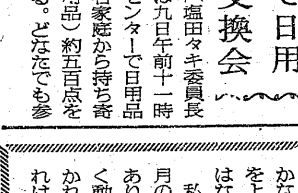 と日用
交換会
塩田タキ委員長
は九日午前十一時
センターで日用品
各家庭から持ち寄
用品）約五百点を
る。どなたでも参
かな
を上
はな
私
月の
あり
く動
かれ
れは